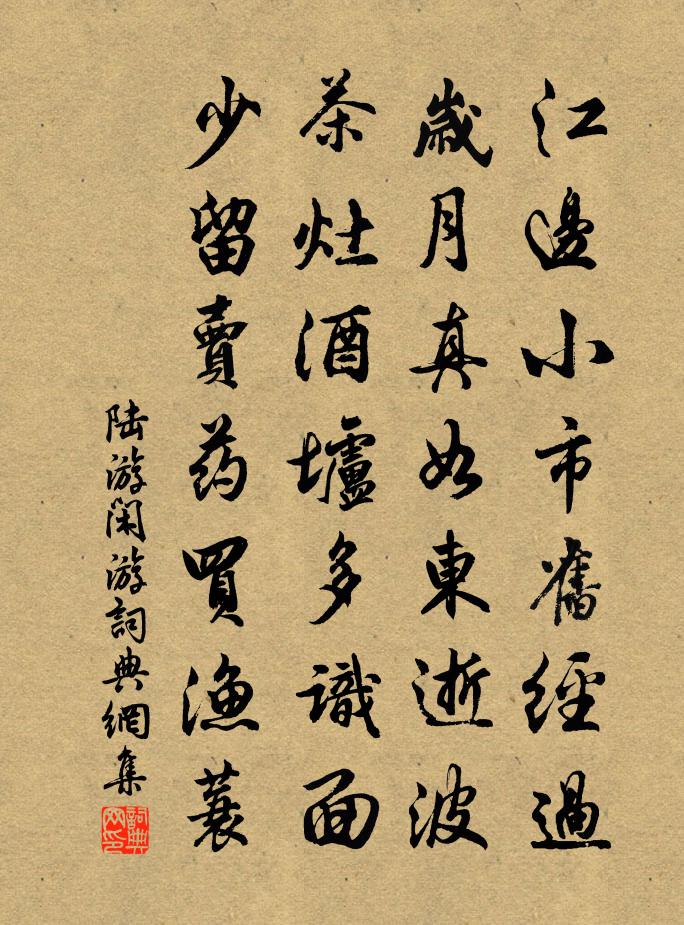 江邊小市舊經過
歲月真如東逝波
茶灶酒壚多識面
少留賣药買漁蓑
陆游閑游詞典網集
詞典網印